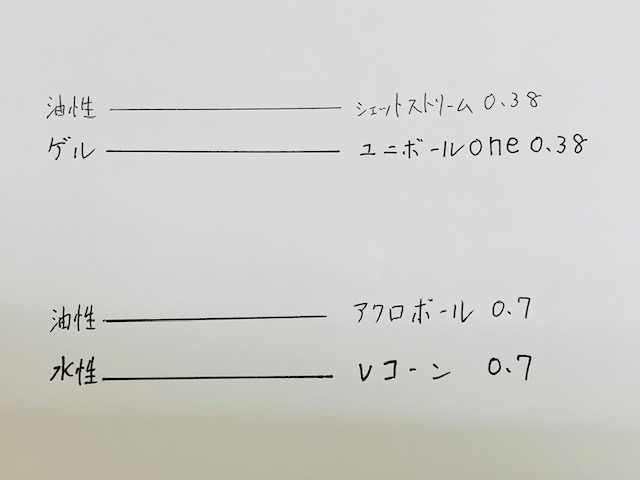 油性 ジェットストリーム 0.38
ゲル ユニボールone 0.38
油性 アクロボール 0.7
水性 Vコーン 0.7